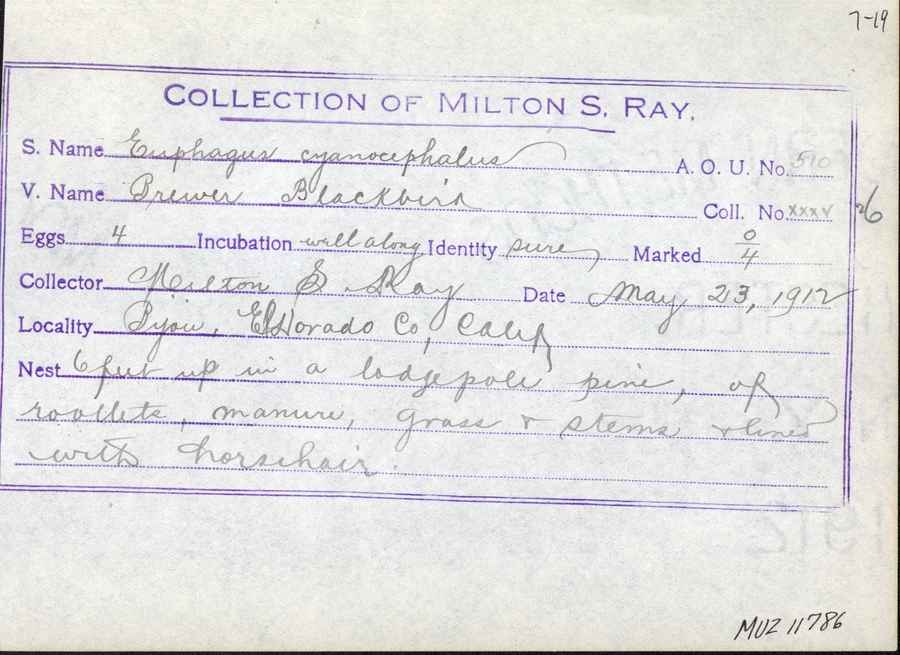 7-19
COLLECTION OF MILTON S. RAY.
S. Name Euphagus cyanocephalus A. O. U. No. 510
V. Name Brewer Blackbird Coll. No. xxxv 26
Eggs 4 Incubation well along Identity sure Marked 0/4
Collector Milton S Ray Date May 23, 1912
Locality Bijou, El Dorado Co, Calif
Nest 6 feet up in a lodgepole pine, of
rootlets, manure, grass & stems & lined
with horsehair.
MVZ 11786